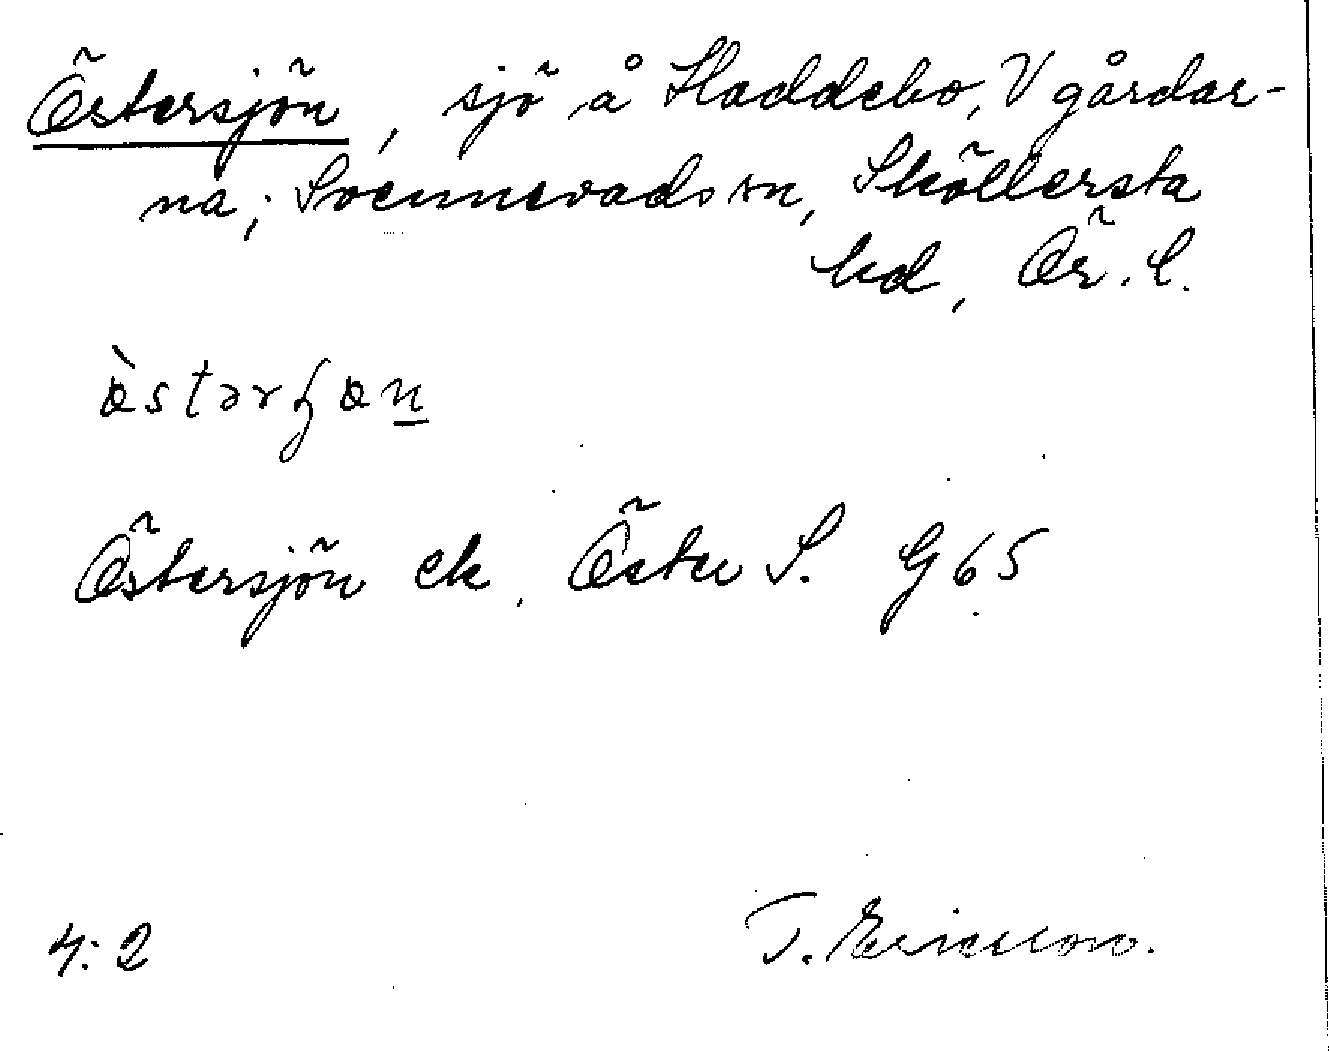 Östersjön, sjö å Haddebo, V gårdar-
na; Svennevads sn, Sköllersta
hd, Ör. l.
Östersjön ek, Öster S. G 65
4:2
T. Ericsson.